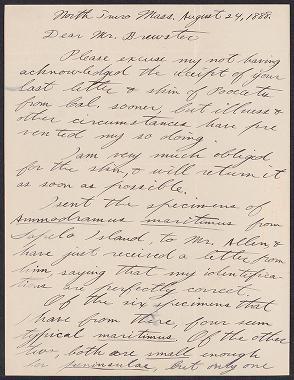 North Truro Mass. August 24, 1888.
Dear Mr. Brewster
Please excuse my not having
acknowledged the receipt of your
last letter & skin of
from Cal. sooner, but illness &
other circumstances have pre
vented my so doing.
I am very much obliged
for the skin, & will return it
as soon as possible.
I sent the specimens of
Ammodramus maritimus from
Sapelo Island, to Mr. Allen, &
have just received a letter from
him, saying that my identifica-
tions are perfectly correct.
Of the six specimens that
I have from there, four seem
typical maritimus. Of the other
two, both are small enough
for peninsulae, but only one